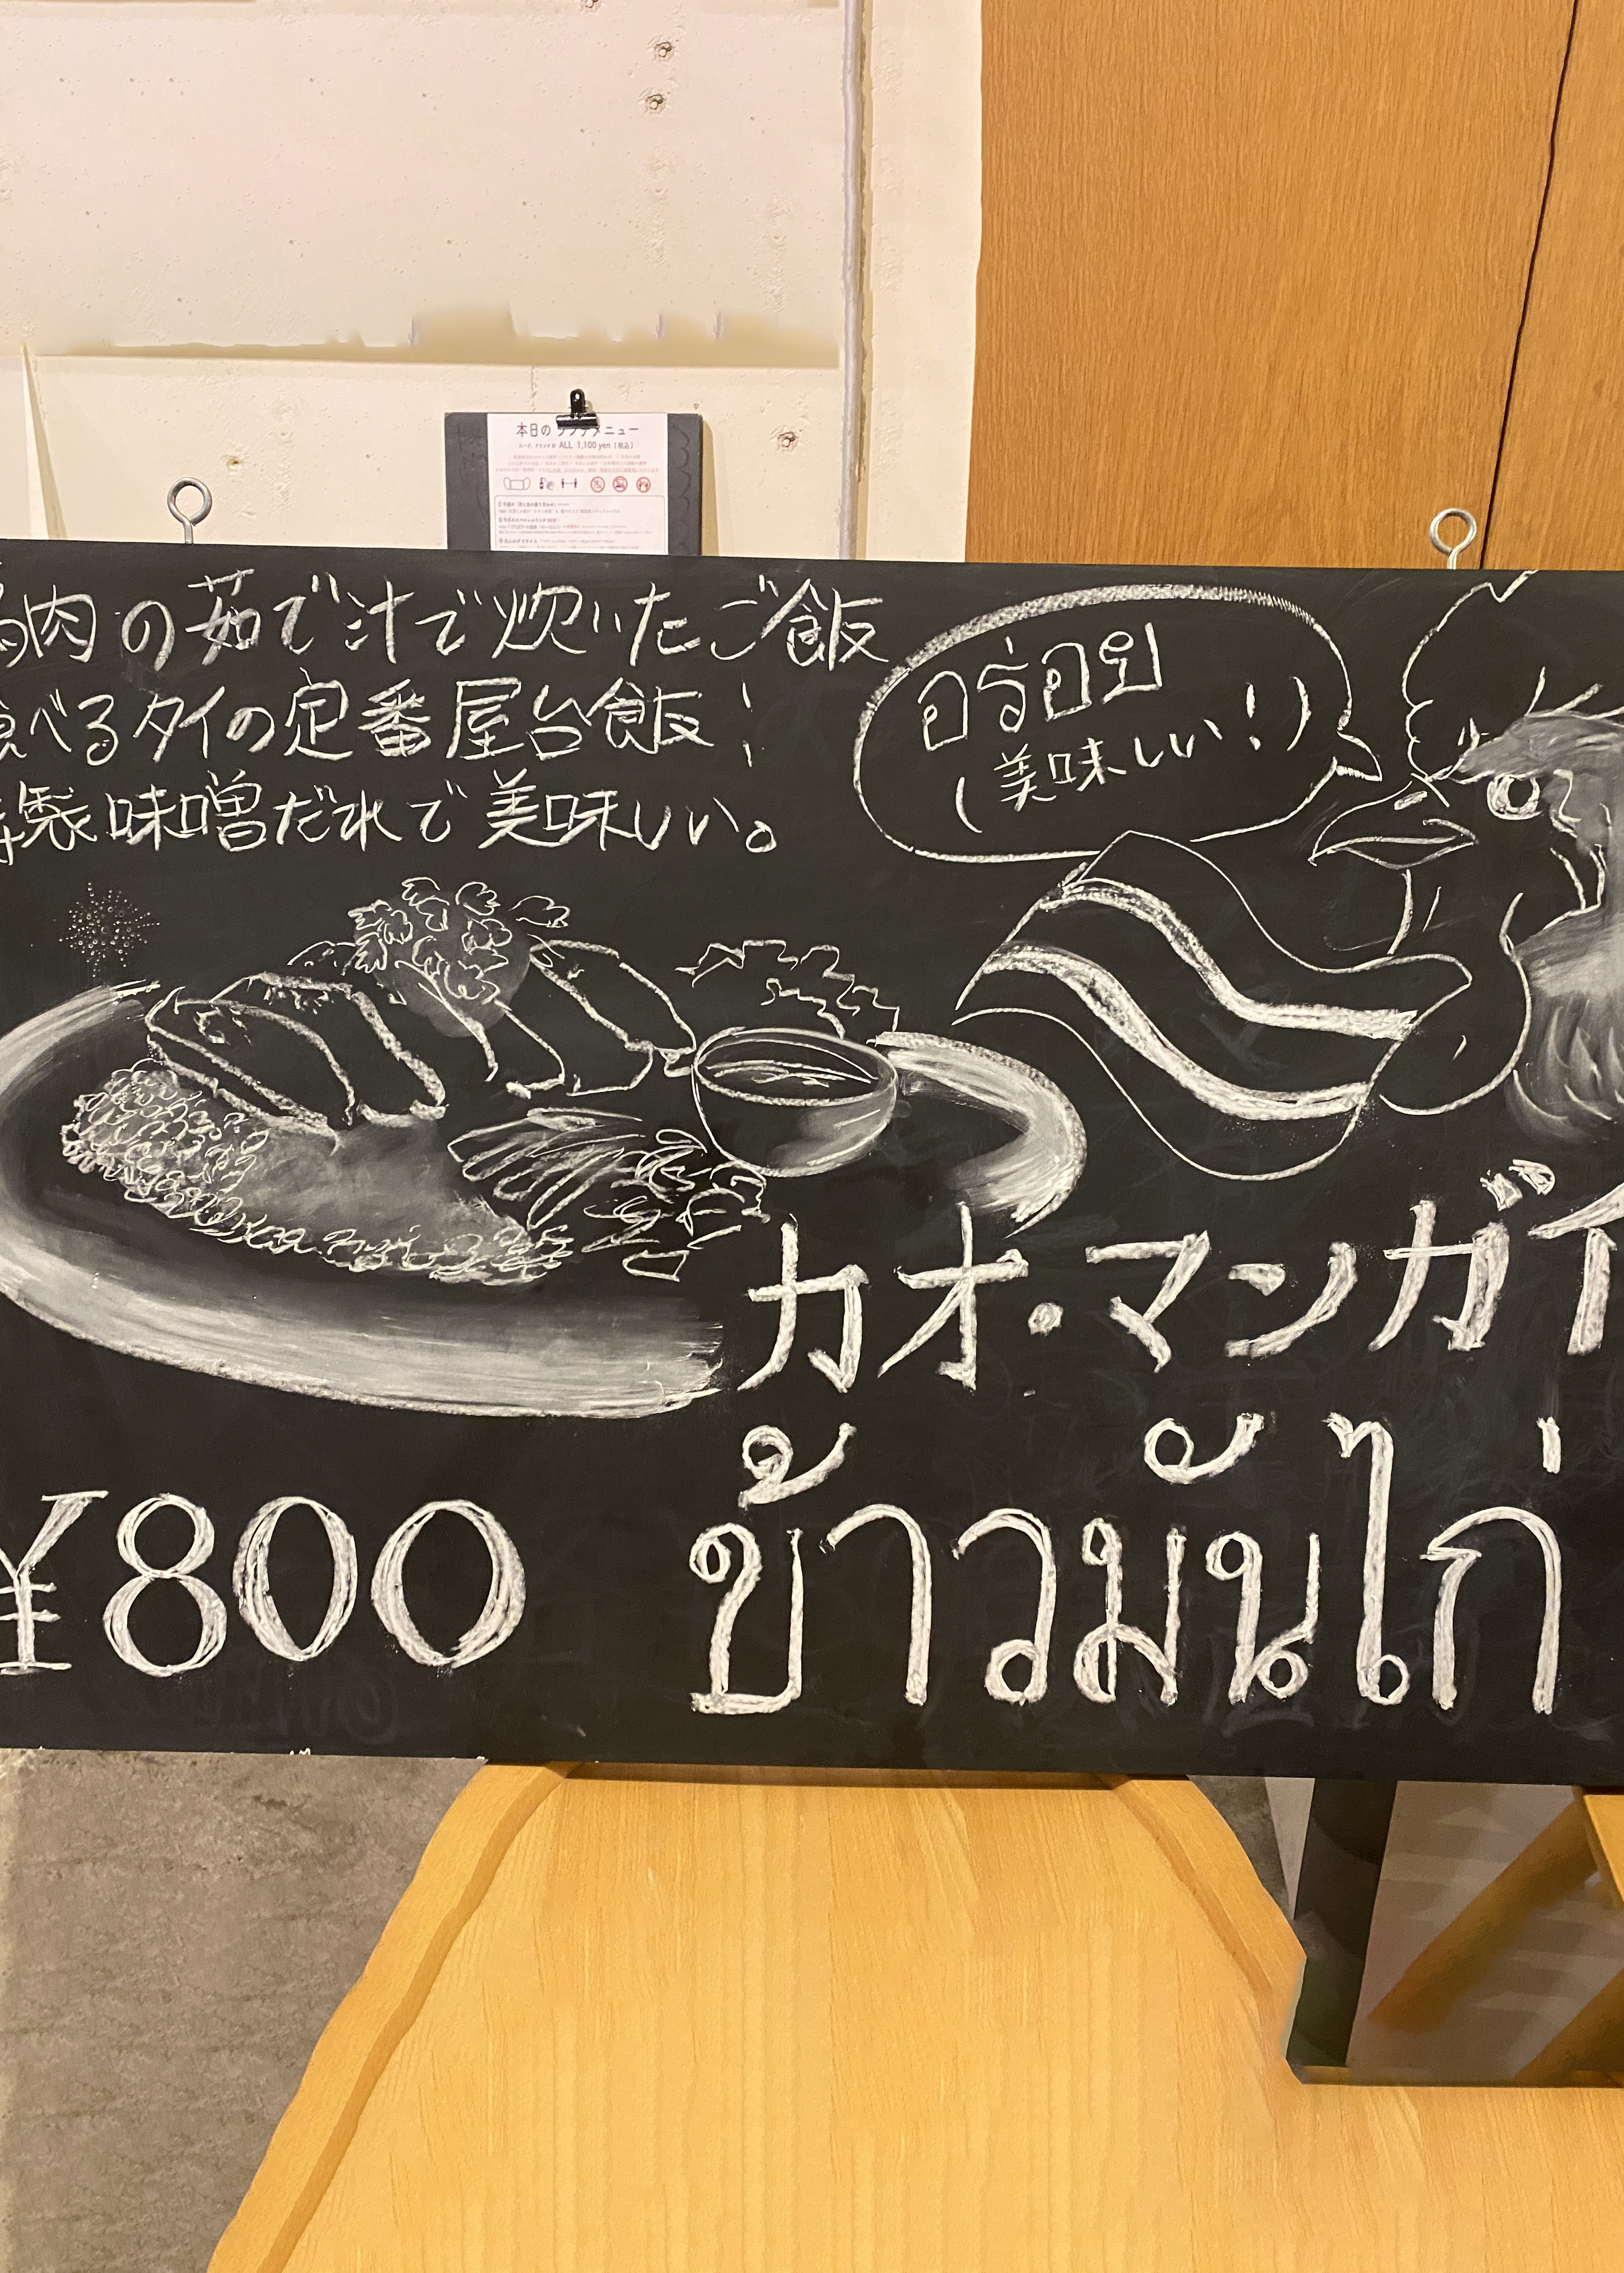 本日の ランチメニュー
ALL 1,100 yen (税込)
肉の茹で汁で炊いたご飯
べるタイの定番屋台飯!
製味噌だれで美味しい。
อร่อย
(美味しい!)
カオ・マンガイ
¥800
ข้าวมันไก่